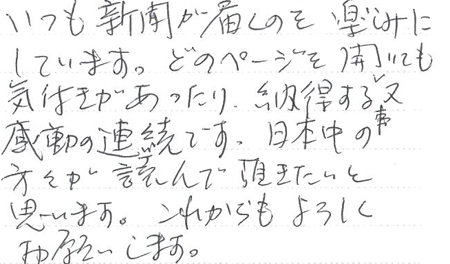 いつも新聞が届くのを楽しみに
しています。どのページを開いても
気付きがあったり、納得する事又
感動の連続です。日本中の
方々が読んで頂きたいと
思います。これからもよろしく
お願いします。